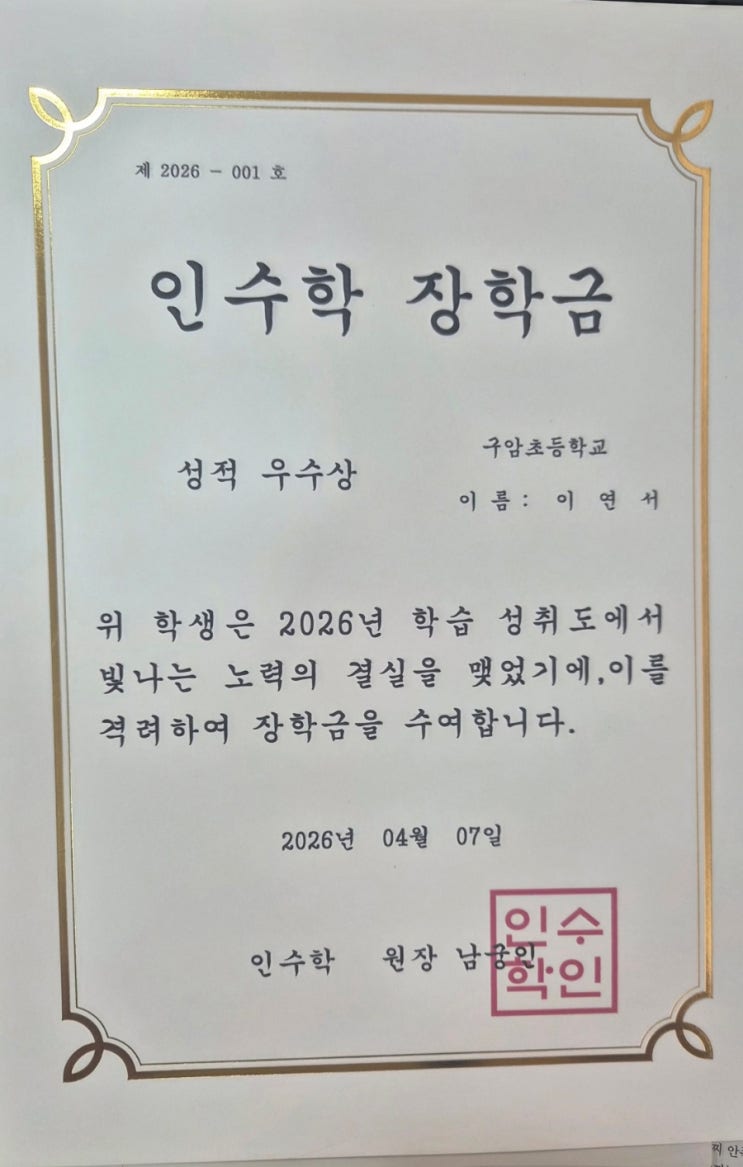 제 2026 - 001 호
인수학 장학금
성적 우수상
구암초등학교
이 름 : 이 연 서
위 학생은 2026년 학습 성취도에서
빛나는 노력의 결실을 맺었기에,이를
격려하여 장학금을 수여합니다.
2026년 04월 07일
인수학 원장 남궁인
인수
학인
찌 안